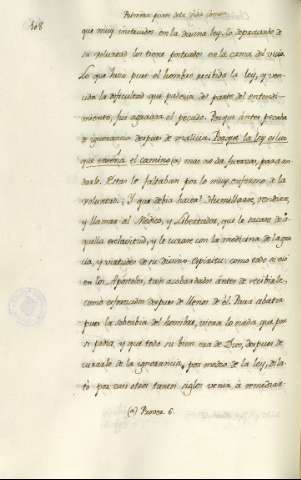 108
Primera parte dela
que muy instruidos en la divina ley, lo depravado de
su voluntad los tiene postrados en la cama del vicio.
Lo que hizo pues el hombre recibida la ley, y ven-
cida la dificultad que padecia del parte del entendi-
miento, fue agravar el pecado. Porque ántes pecaba
de ignorancia despues de malicia. Porque la ley es luz
que enseña el camino (a) mas no da fuerzas para an-
darle. Estas le faltaban por lo muy enfermo de la
voluntad. ¿Y que debia hacer? Humillarse, rendirse,
y llamar al Médico, y Libertador, que le sacase de a-
quella esclavitud, y le curase con la medicina de la gra-
cia, y virtudes de su divino Espiritu: como todo se vió
en los Apostoles, tan acobardados ántes de recibirle,
como esforzados despues de llenos de él. Para abatir
pues la soberbia del hombre, viera lo nada que por
si podia, y que todo su bien era de Dios, despues de
curarle de la ignorancia, por medio de la ley, dila-
tó por casi otros tantos siglos venir á remediar
(a) Proverb. 6.